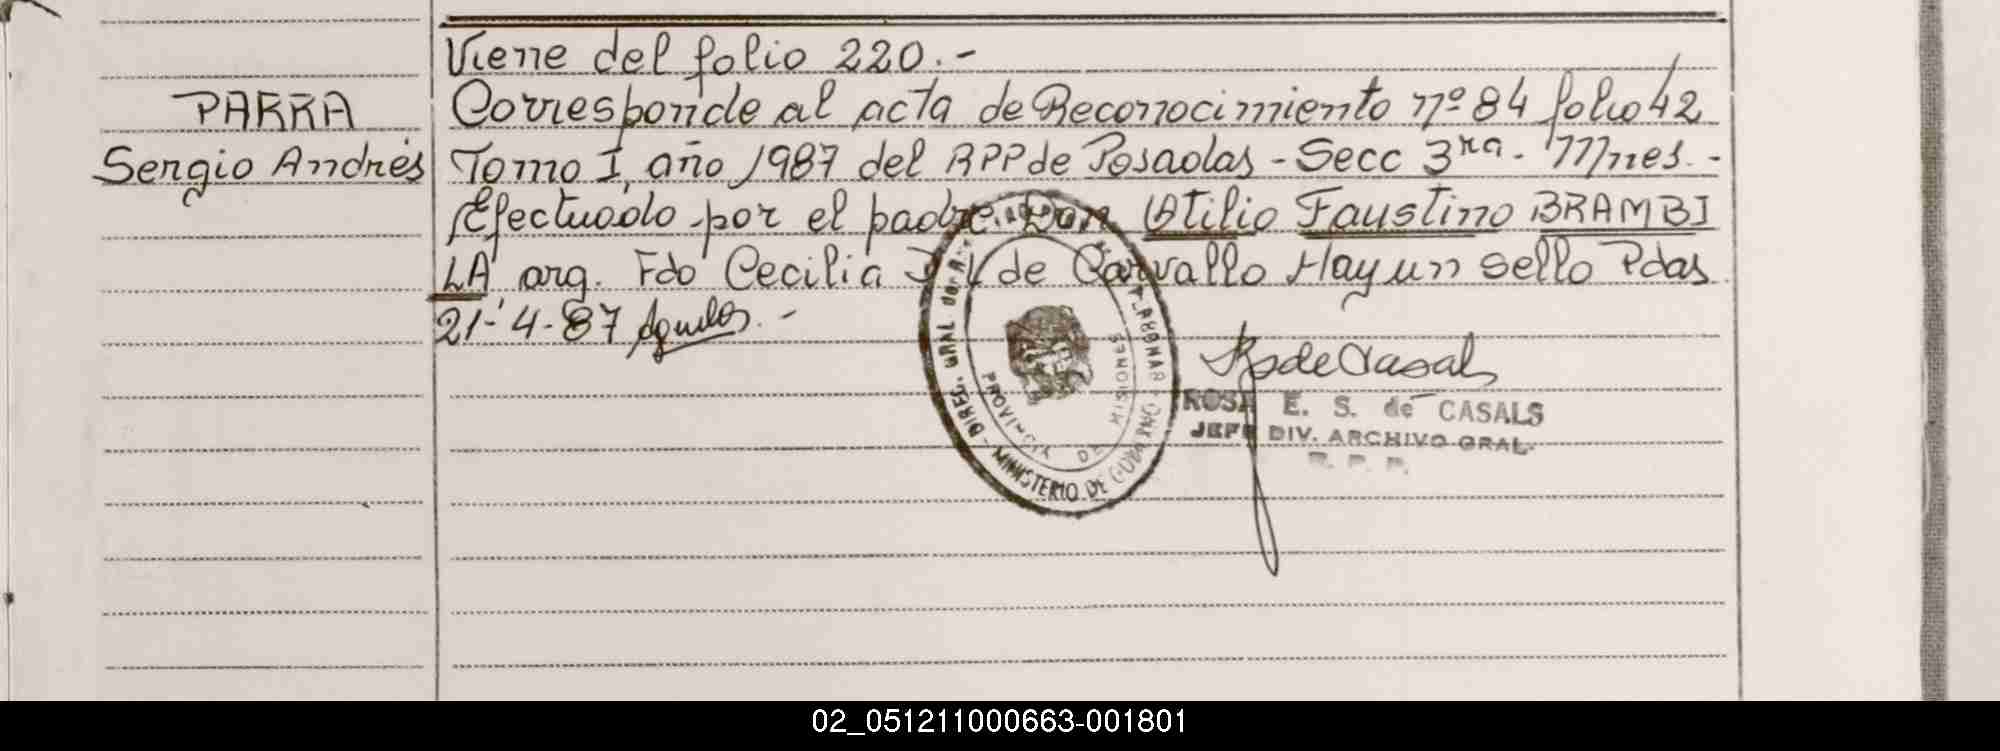 Viene del folio 220.-
PARRA
Sergio Andrés
Corresponde al acta de Reconocimiento nº 84 folio 42
Tomo I, año 1987 del RPP de Posadas - Secc 3ra. Mnes.-
Efectuado por el padre Don Atilio Faustino BRAMBI
LA arg. Fdo Cecilia de Carvallo Hay un sello Pdas
21-4-87
DIREC. GRAL DE
MINISTERIO DE GOBIERNO
PROVINCIA DE MISIONES
ROSA E. S. de CASALS
JEFE DIV. ARCHIVO GRAL.
R. P. P.
02_051211000663-001801